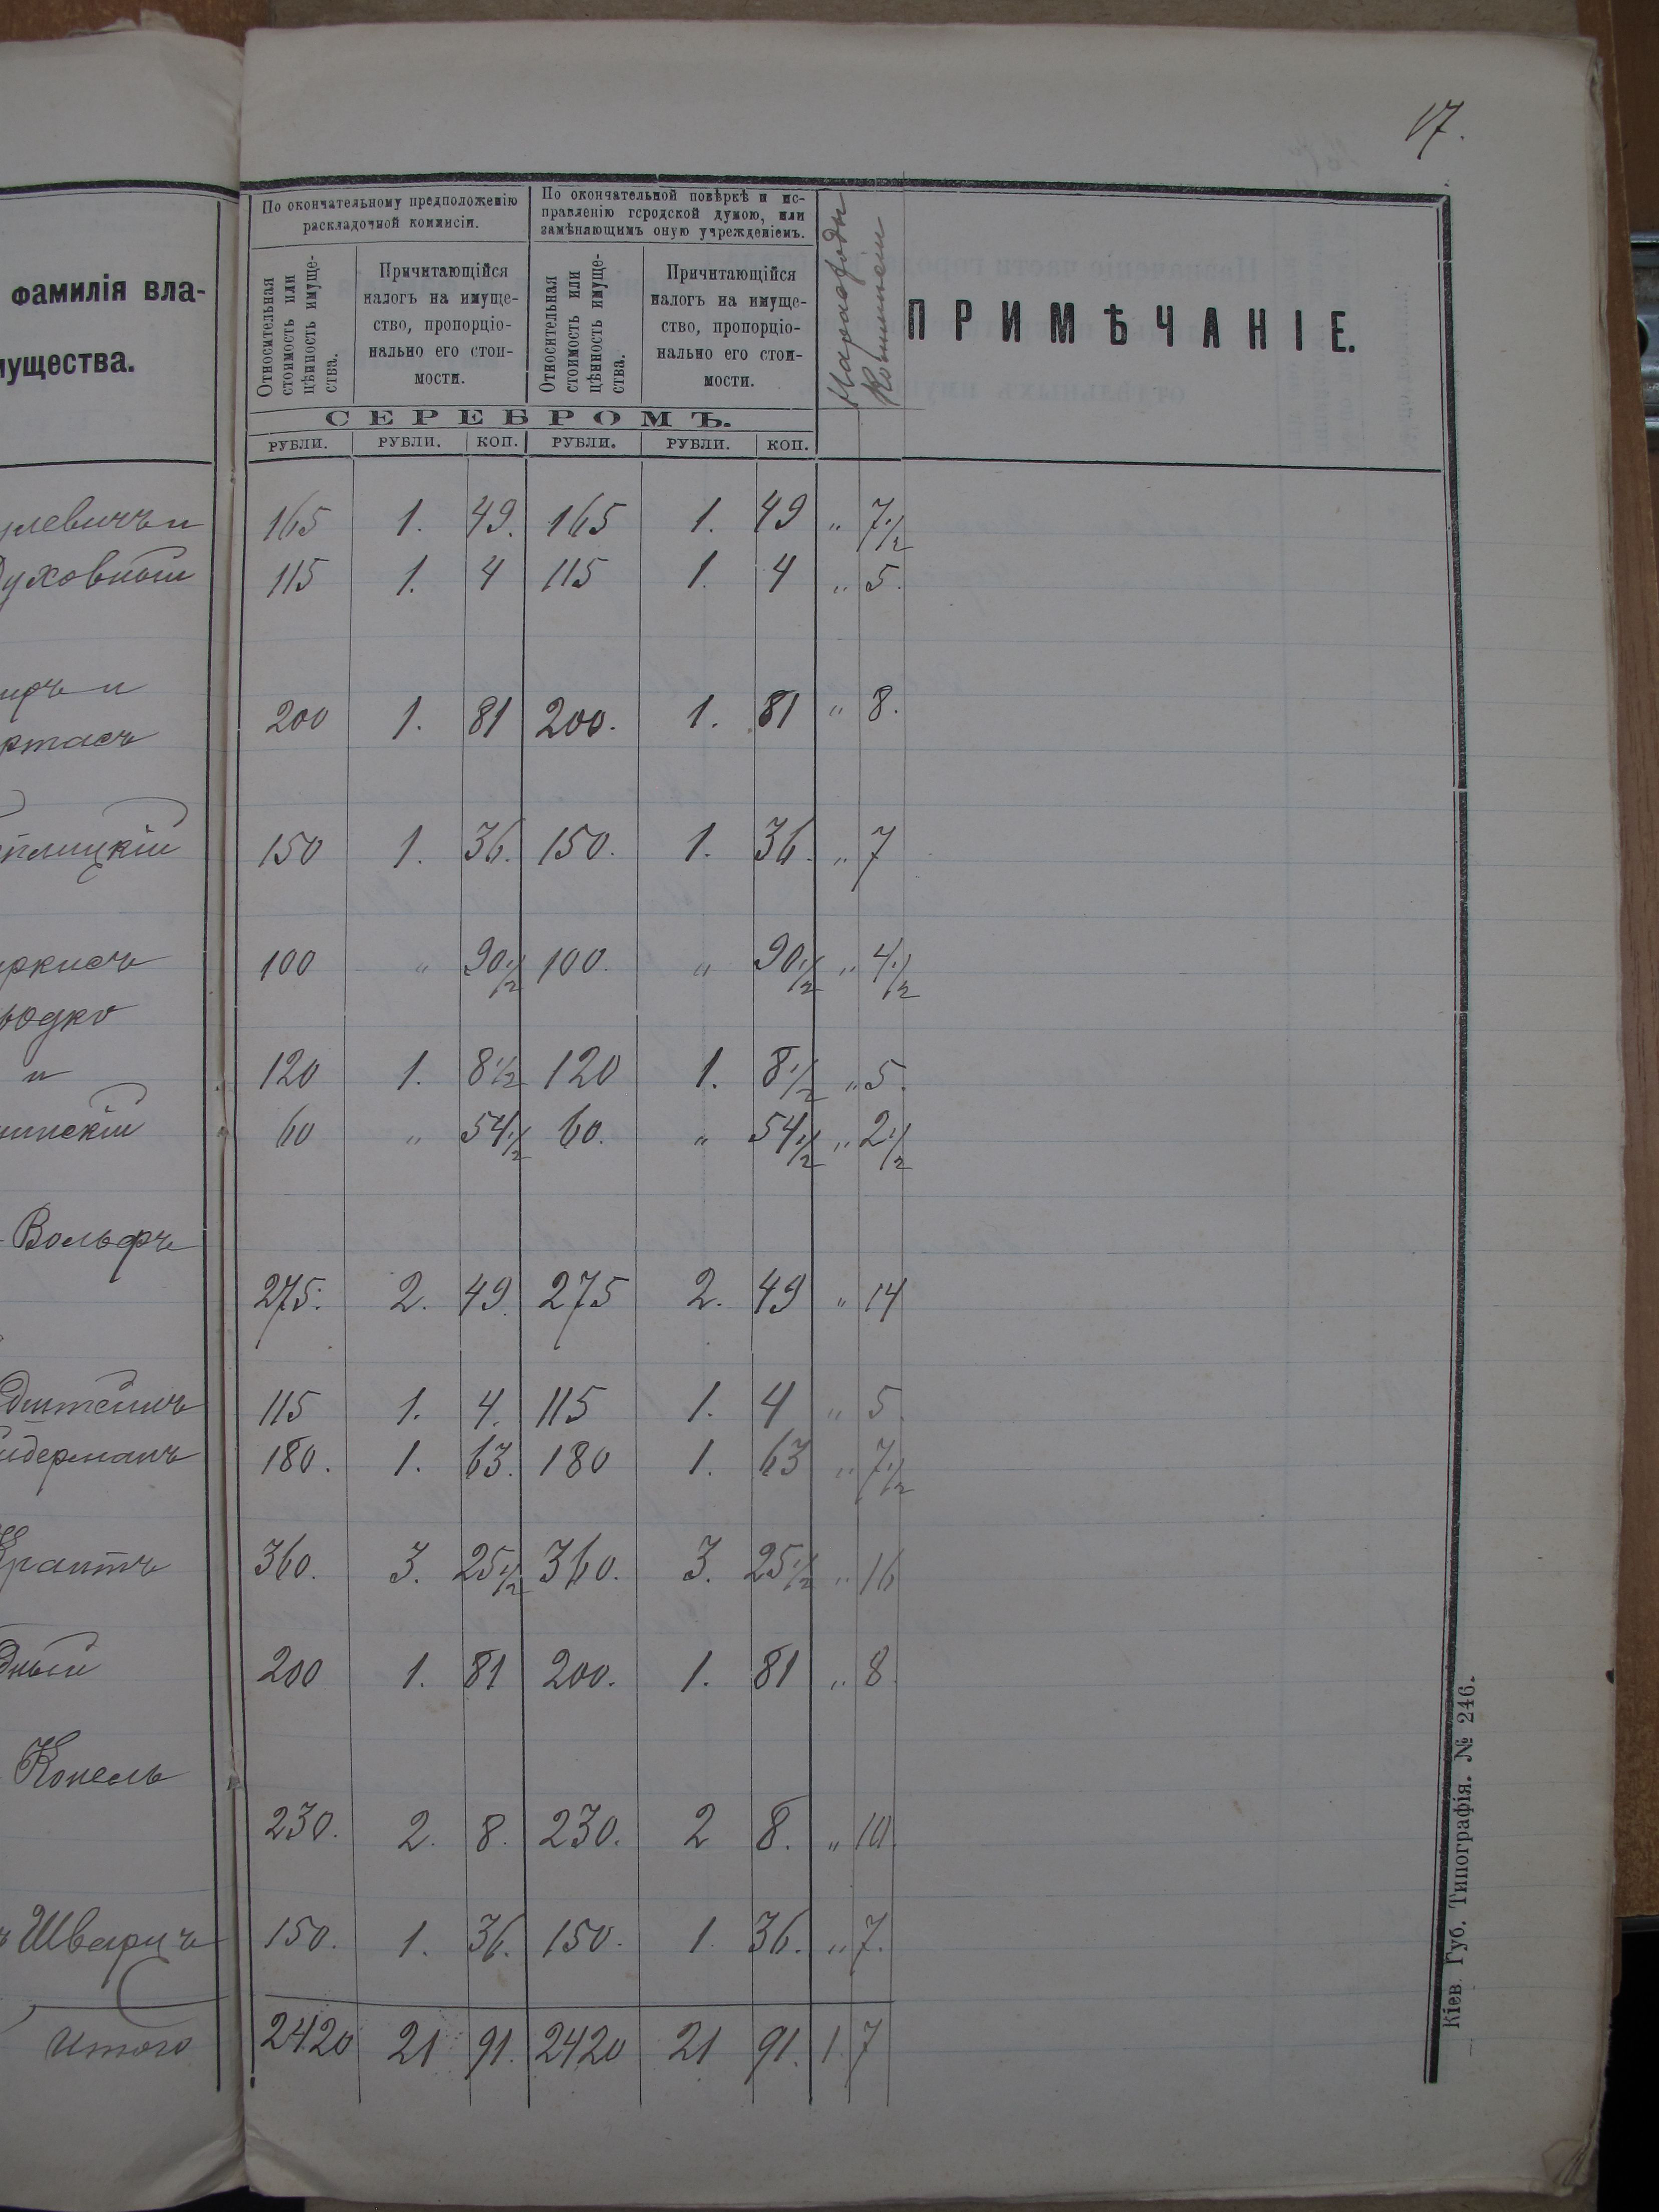 17.
фамилія вла-
ущества.
По окончательному предположенію
раскладочной коммисіи.
По окончательной повѣркѣ и ис-
правленію городской думою, или
замѣняющимъ оную учрежденіемъ.
Относительная
стоимость или
цѣнность имуще-
ства.
Причитающійся
налогъ на имуще-
ство, пропорціо-
нально его стои-
мости.
Относительная
стоимость или
цѣнность имуще-
ства.
Причитающійся
налогъ на имуще-
ство, пропорціо-
нально его стои-
мости.
На расходы
Коммисіи
ПРИМѢЧАНІЕ.
СЕРЕБРОМЪ.
РУБЛИ. РУБЛИ. КОП. РУБЛИ. РУБЛИ. КОП.
левичъ и 165 1. 49. 165 1. 49 „ 7 1/2
Духовный 115 1. 4 115 1. 4 „ 5.
200 1. 81 200. 1. 81 „ 8.
150 1. 36. 150. 1. 36. „ 7
100 „ 90 1/2 100. „ 90 1/2 „ 4 1/2
и 120 1. 8 1/2 120 1. 8 1/2 „ 5.
инскій 60 „ 54 1/2 60. „ 54 1/2 „ 2 1/2
Вольфъ
275. 2. 49. 275 2. 49 „ 14
115 1. 4. 115 1. 4 „ 5.
идерманъ 180. 1. 63. 180 1. 63 „ 7 1/2
360. 3. 25 1/2 360. 3. 25 1/2 „ 16
дный 200 1. 81 200. 1. 81 „ 8.
Конель
230. 2. 8. 230. 2 8. „ 10.
Шварцъ 150. 1. 36. 150. 1. 36. „ 7.
Итого 2420 21 91. 2420 21 91. 1 7
Кіев. Губ. Типографія. № 246.